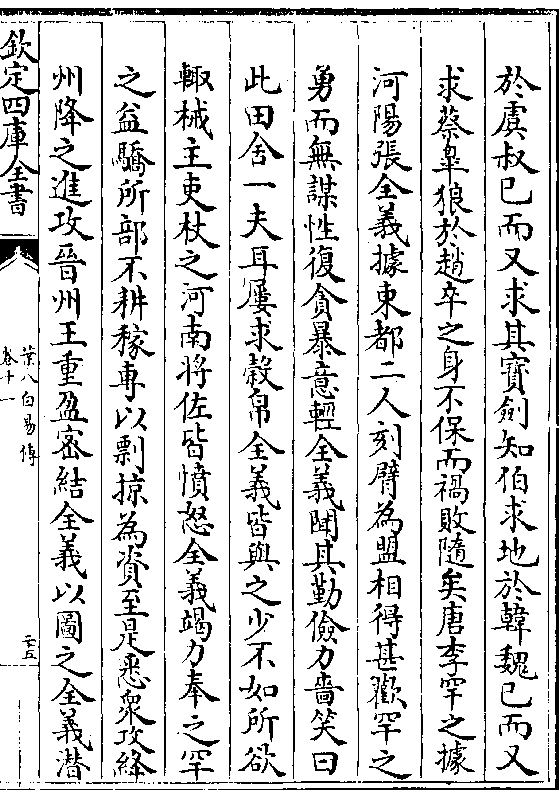 於虞叔已而又求其寳劍知伯求地於韓魏已而又
求蔡臯狼於趙卒之身不保而禍敗隨矣唐李罕之據
河陽張全義據東都二人刻臂為盟相得甚歡罕之
勇而無謀性復貪暴意輕全義聞其勤儉力嗇笑曰
此田舍一夫耳屢求穀帛全義皆與之少不如所欲
輙械主吏杖之河南將佐皆憤怒全義竭力奉之罕
之益驕所部不耕稼專以剽掠為資至是悉衆攻絳
州降之進攻晉州王重盈宻結全義以圖之全義潜
欽定四庫全書
葉八白易傳
卷十一
二十五